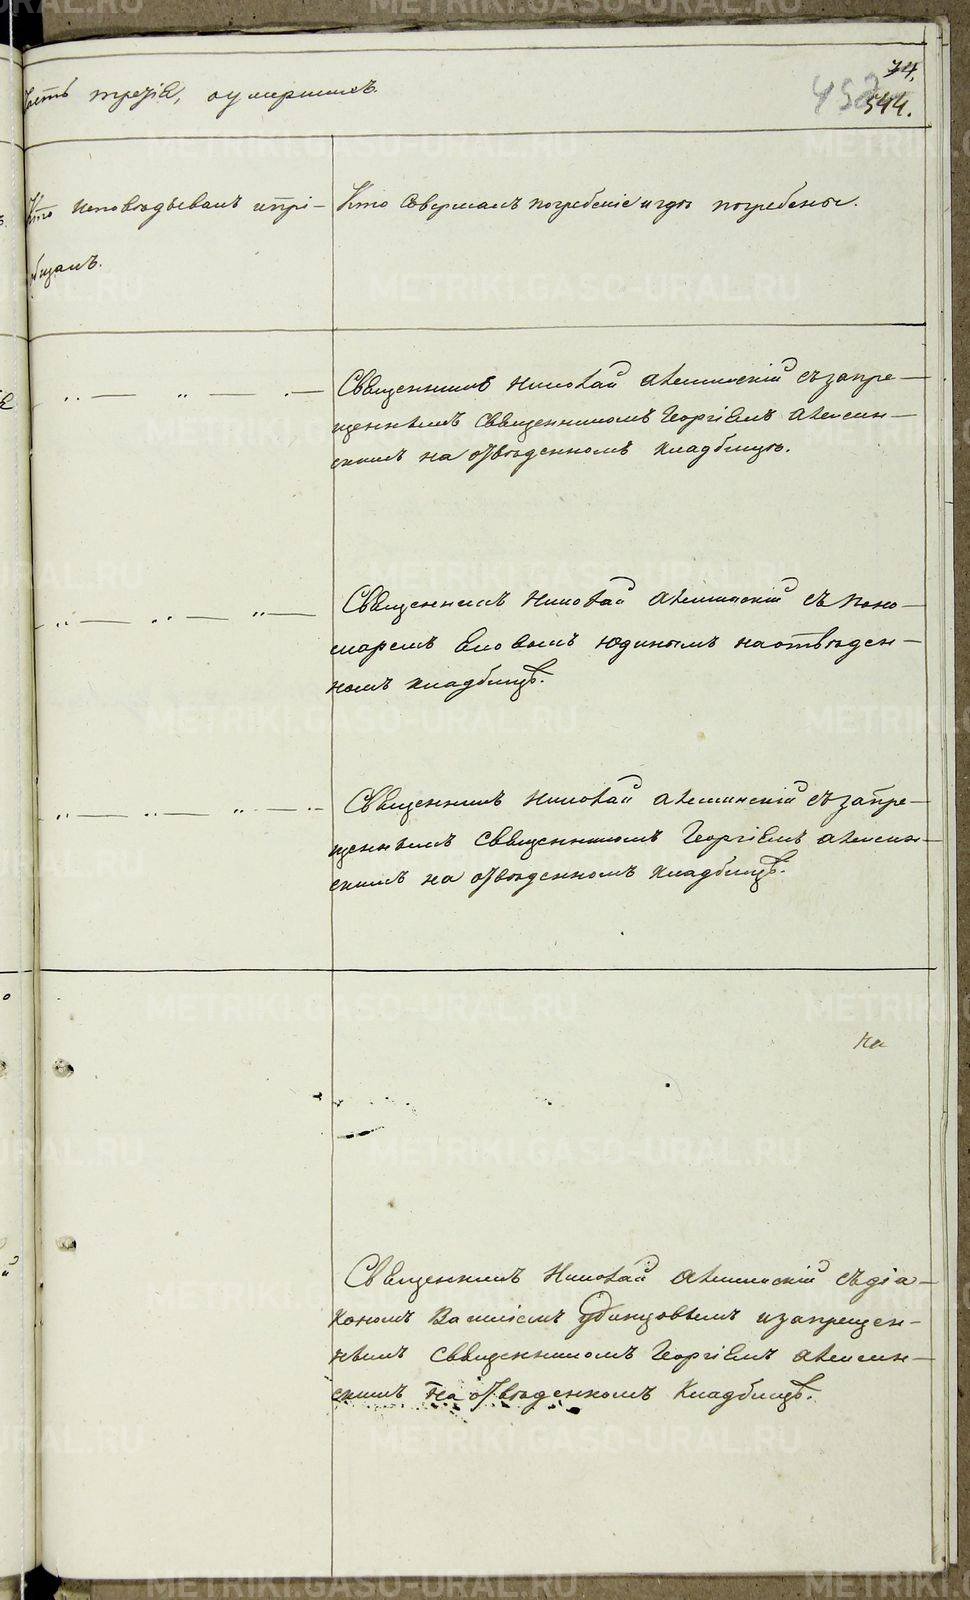 74.
452
544.
Часть третія, о умершихъ.
Кто исповѣдывалъ и прі-
общалъ.
Кто совершалъ погребеніе и гдѣ погребены.
Священникъ Николай съ запре-
щеннымъ священникомъ Георгіемъ
скимъ на отвѣденномъ кладбищѣ.
Священникъ Николай съ поно-
маремъ Юдинымъ на отвѣден-
номъ кладбищѣ.
Священникъ Николай съ запре-
щеннымъ священникомъ Георгіемъ
скимъ на отвѣденномъ кладбищѣ.
На
Священникъ Николай съ діа-
кономъ Василіемъ Удинцовымъ и запрещен-
нымъ священникомъ Георгіемъ
скимъ на отвѣденномъ кладбищѣ.
METRIKI.GASO-URAL.RU